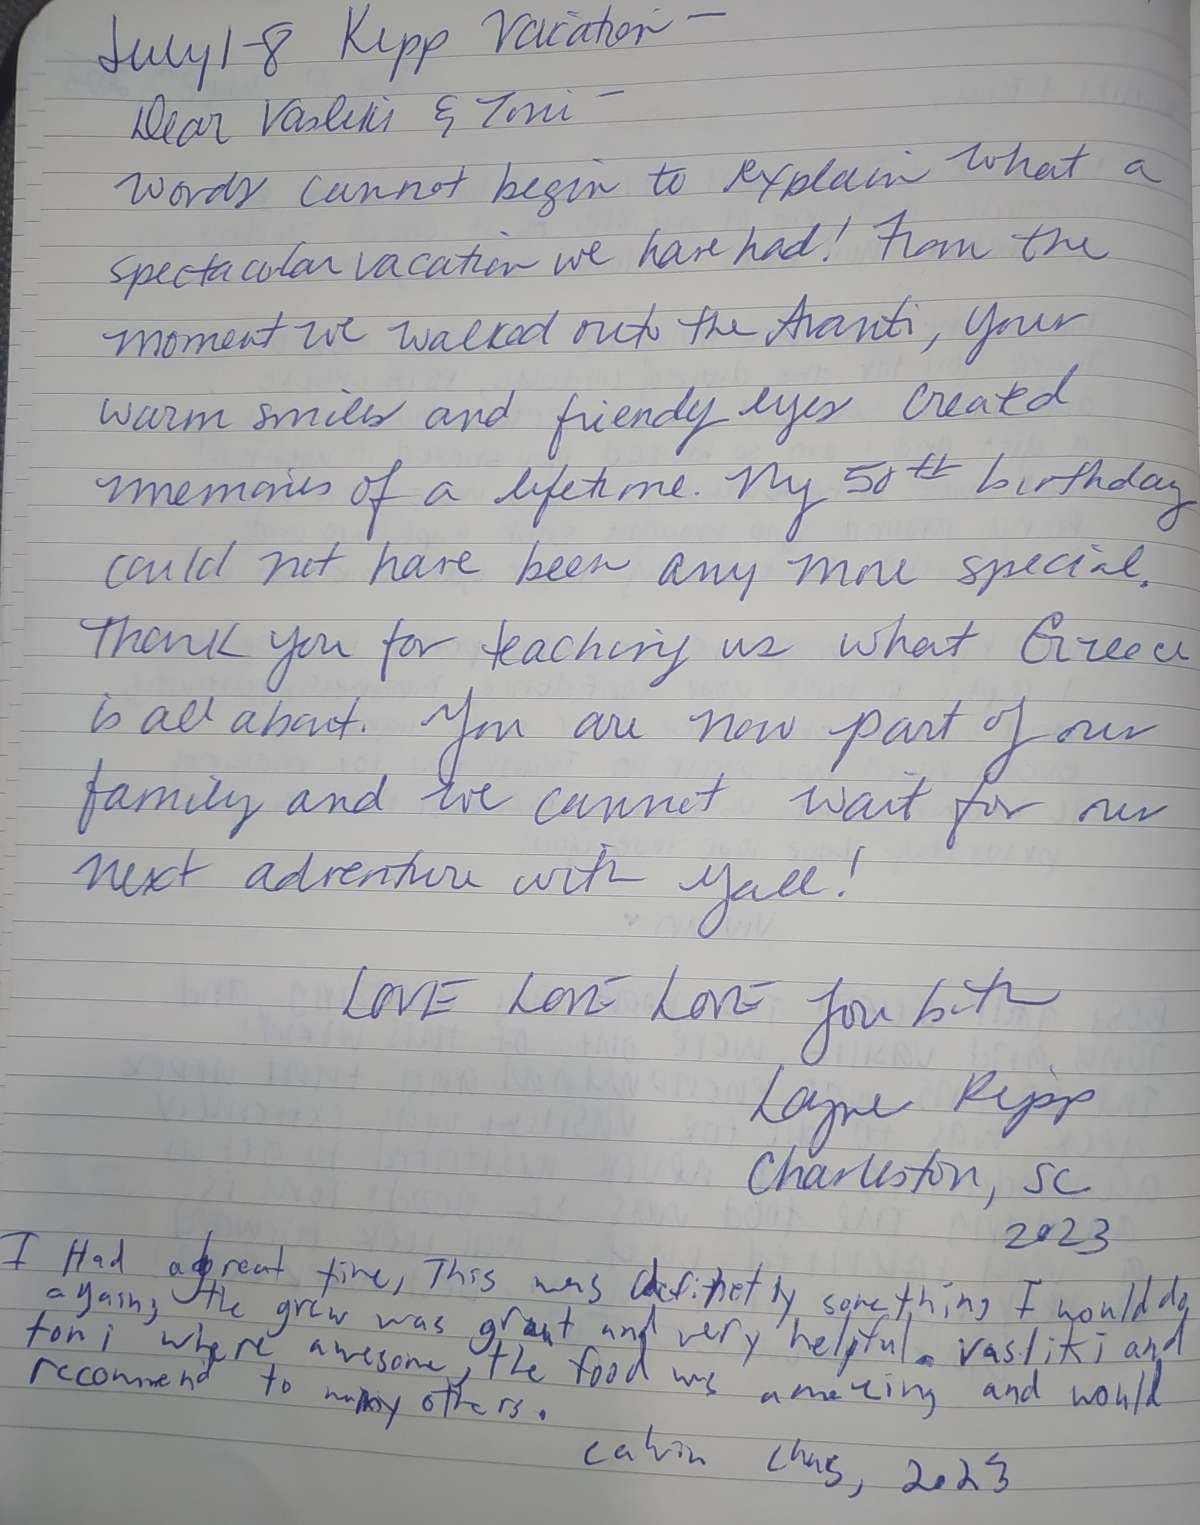 July 1-8 Kipp Vacation -
Dear Vasliki & Toni -
Words cannot begin to explain what a
spectacular vacation we have had! From the
moment we walked onto the Avanti, your
warm smiles and friendly eyes created
memories of a lifetime. My 50th birthday
could not have been any more special.
Thank you for teaching us what Greece
is all about. You are now part of our
family and we cannot wait for our
next adventure with yall!
LOVE LOVE LOVE you both
Layne Kipp
Charleston, SC
2023
I Had a great time, This was definetly something I would do
again, the grew was great and very helpful. Vasliki and
toni where awesome, the food was amazing and would
recommend to many others.
Calvin Chas, 2023